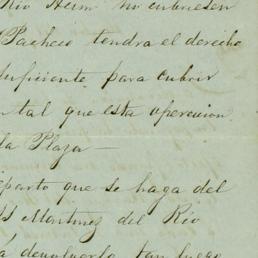 Rio Herm no cubriesen
Pacheco tendra el derecho
suficiente para cubrir
tal que esta operacion
la Plaza —
eparto que se haga del
Martinez del Rio
á devolverlo tan luego